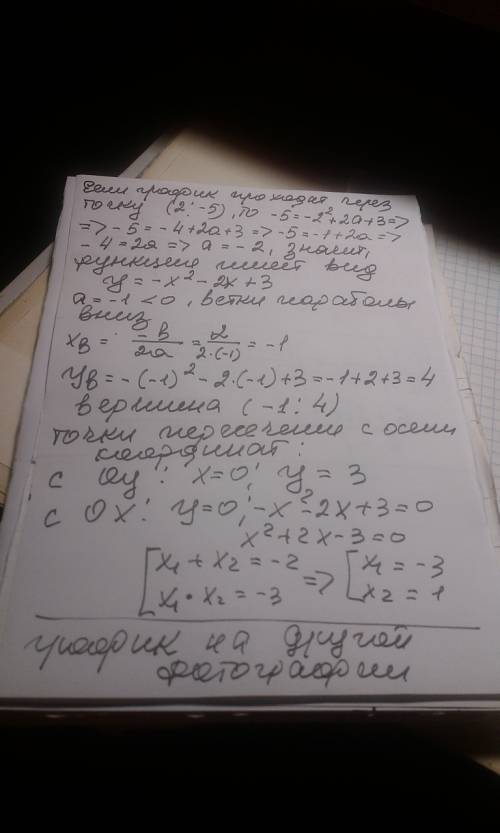 Если график проходит через
точку (2; -5), то -5 = -2² + 2a + 3 =>
=> -5 = -4 + 2a + 3 => -5 = -1 + 2a =>
-4 = 2a => a = -2, значит,
функция имеет вид
y = -x² - 2x + 3
a = -1 < 0, ветки параболы
вниз
x_в = -в/2a = 2/2·(-1) = -1
y_в = -(-1)² - 2·(-1) + 3 = -1 + 2 + 3 = 4
вершина (-1; 4)
точки пересечения с осями
координат:
с Oy: x = 0; y = 3
с Ox: y = 0; -x² - 2x + 3 = 0
x² + 2x - 3 = 0
[x₁ + x₂ = -2 => [x₁ = -3
[x₁ · x₂ = -3 [x₂ = 1
график на другой
фотографии